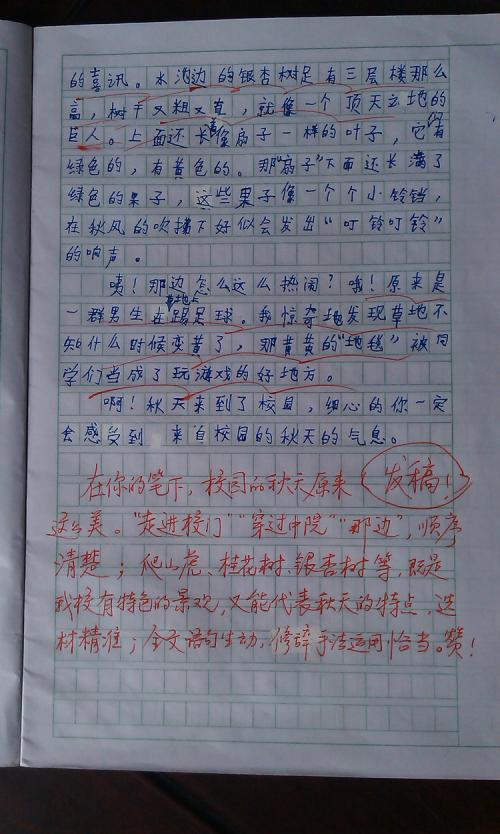 的喜讯。水沟边的银杏树足有三层楼那么
高，树干又粗又直，就像一个顶天立地的
巨人。上面还长着像扇子一样的叶子，它有
绿色的，有黄色的。那“扇子”下面还长满了
绿色的果子，这些果子像一个个小铃铛，
在秋风的吹拂下好似会发出“叮铃叮铃”
的响声。
咦！那边怎么这么热闹？哦！原来是
一群男生在草地上踢足球。我惊奇地发现草地不
知什么时候变黄了，那黄黄的“地毯”被同
学们当成了玩游戏的好地方。
啊！秋天来到了校园，细心的你一定
会感受到来自校园的秋天的气息。
在你的笔下，校园的秋天原来
发稿！
这么美。“走进校门”“穿过中院”“那边”，顺序
清楚；爬山虎、桂花树、银杏树等，既是
我校有特色的景观，又能代表秋天的特点，选
材精准；全文语句生动，修辞手法运用恰当。赞！